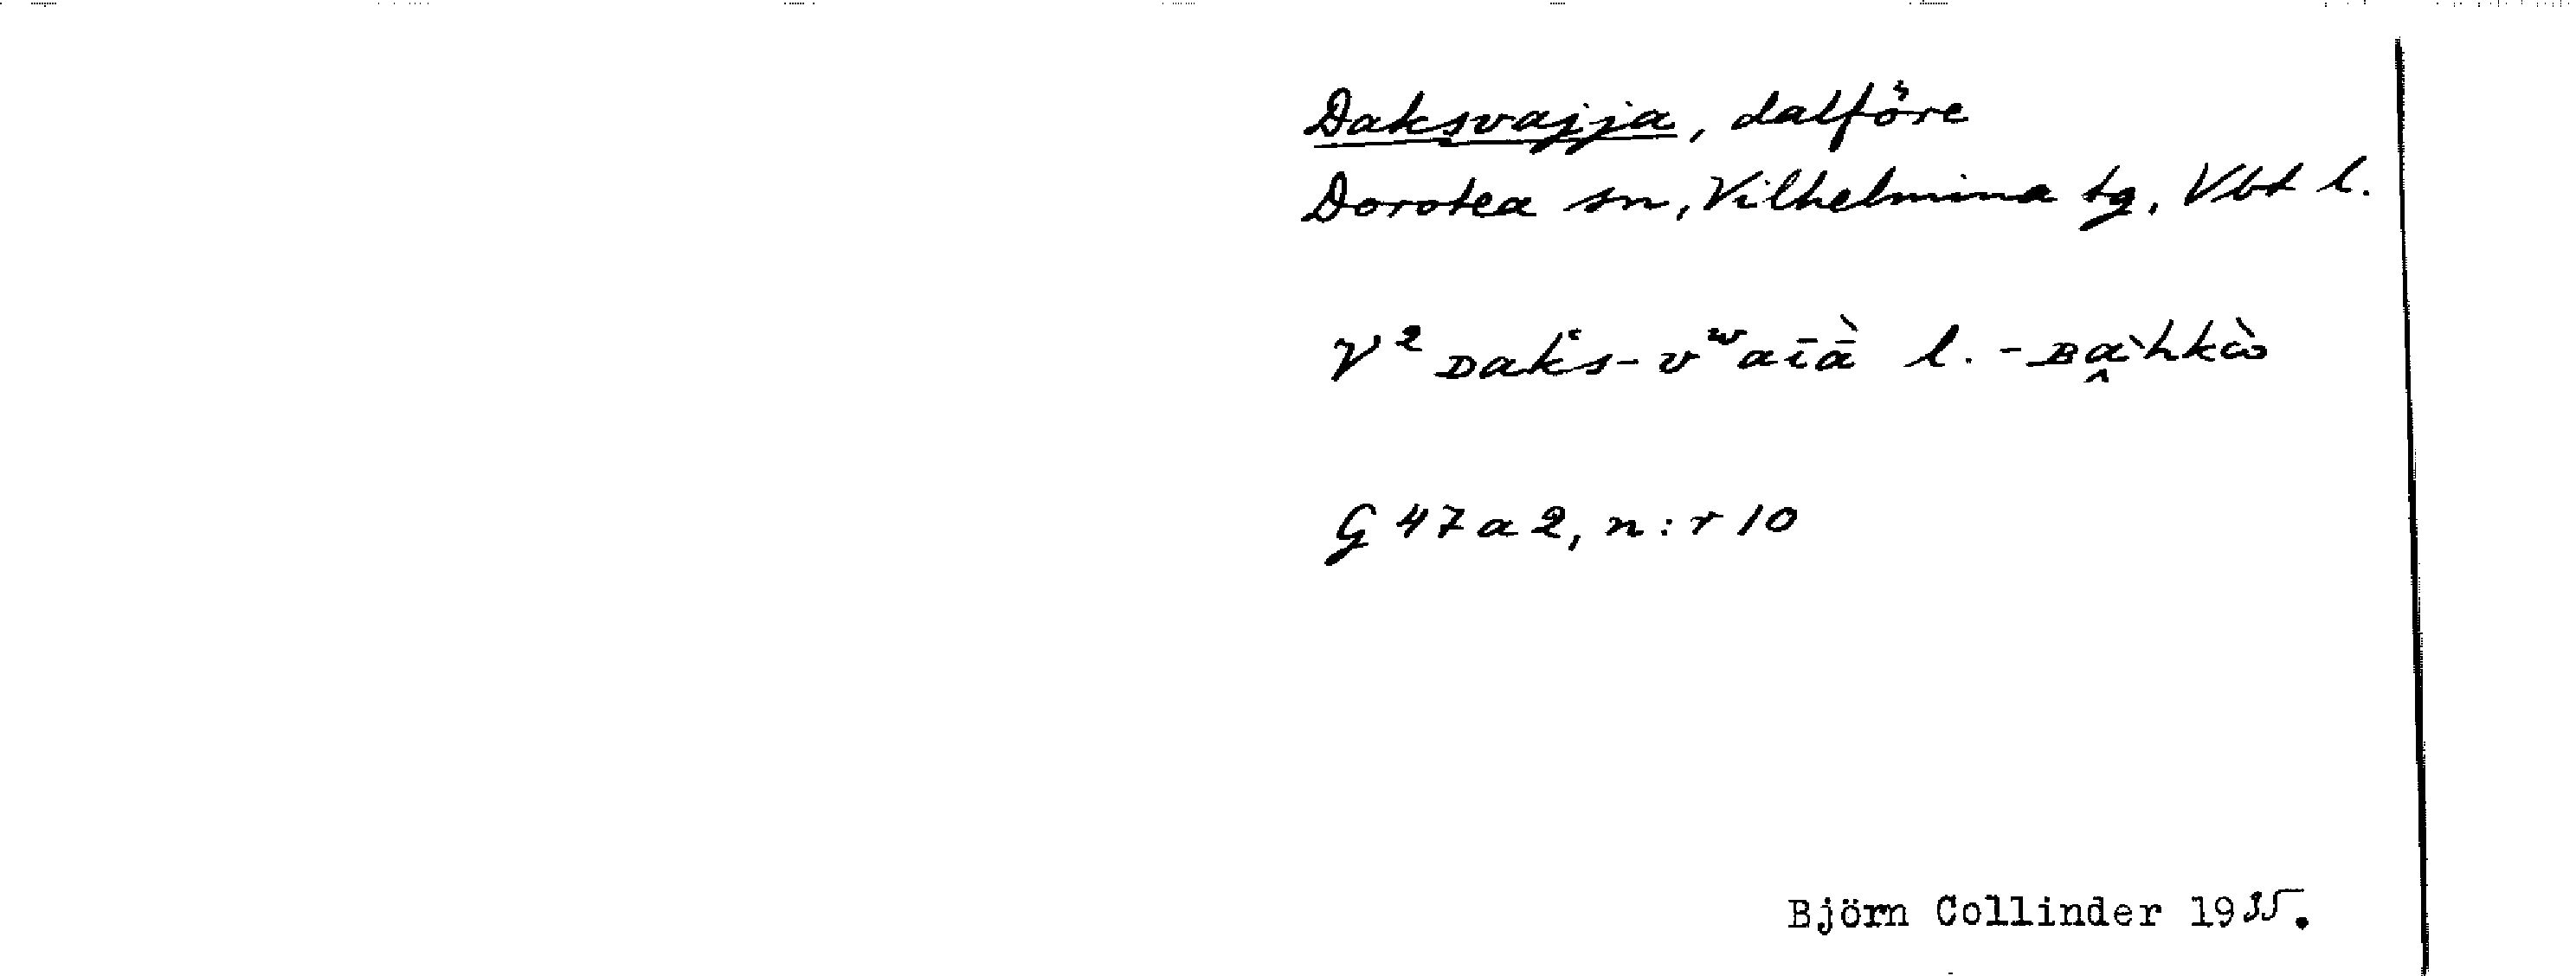 Daksvajja, dalföre
Dorotea sn, Vilhelmina tg, Vbt l.
V² ᴅak‘s-vʷaīā̀ l. -ʙa̭`hkò̀
G 47 a 2, n:r 10
Björn Collinder 1935.